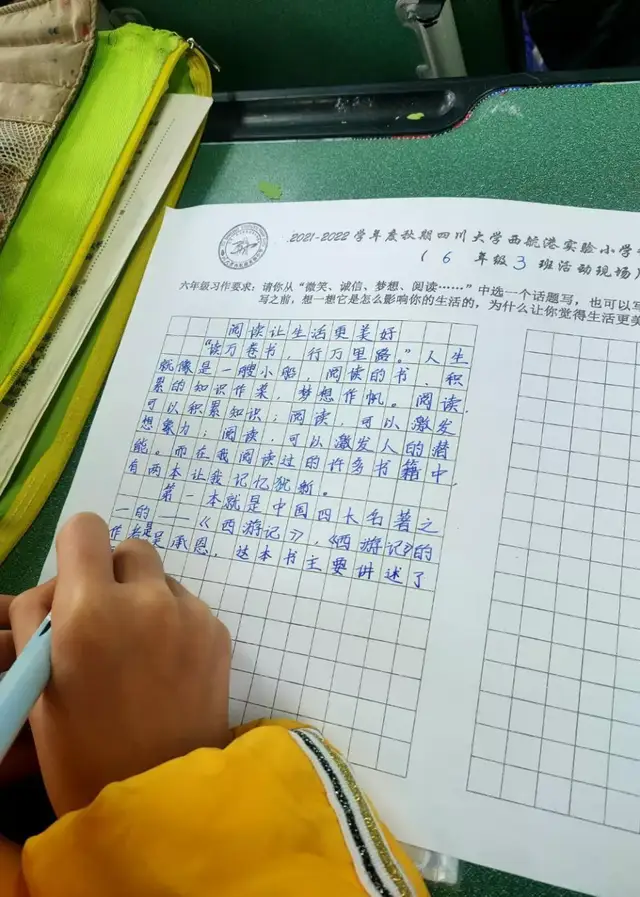 2021-2022学年度秋期四川大学西航港实验小学
( 6 年级 3 班活动现场)
六年级习作要求：请你从“微笑、诚信、梦想、阅读……”中选一个话题写，也可以写
写之前，想一想它是怎么影响你的生活的，为什么让你觉得生活更美
阅读让生活更美好
“读万卷书，行万里路。”人生
就像是一艘小船，阅读的书、积
累的知识作桨，梦想作帆。阅读，
可以积累知识；阅读，可以激发
想象力；阅读，可以激发人的潜
能。而在我阅读过的许多书籍中，
有两本让我记忆犹新。
第一本就是中国四大名著之
一的——《西游记》，《西游记》的
作者是吴承恩，这本书主要讲述了